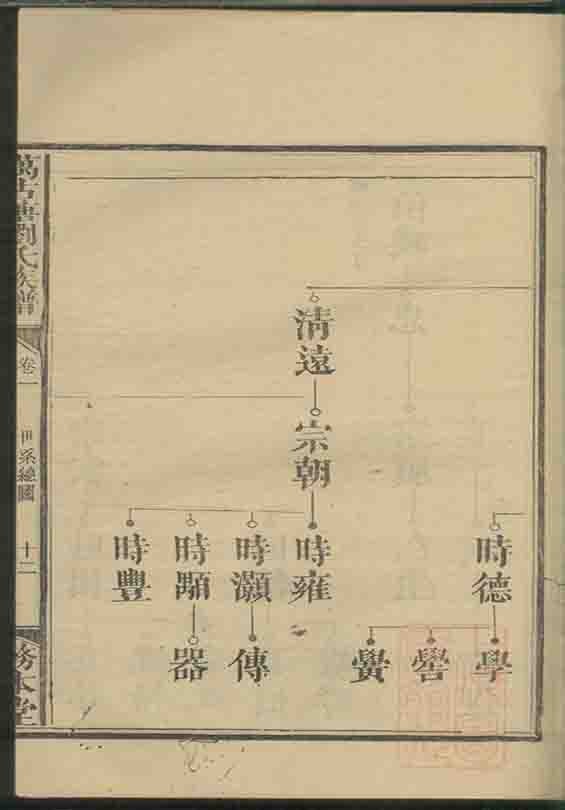 時德
學
嚳
黌
清遠
宗朝
時雍
時灝
傳
時顒
器
時豐
萬古塘劉氏族譜
卷一
世系總圖
十二
務本堂